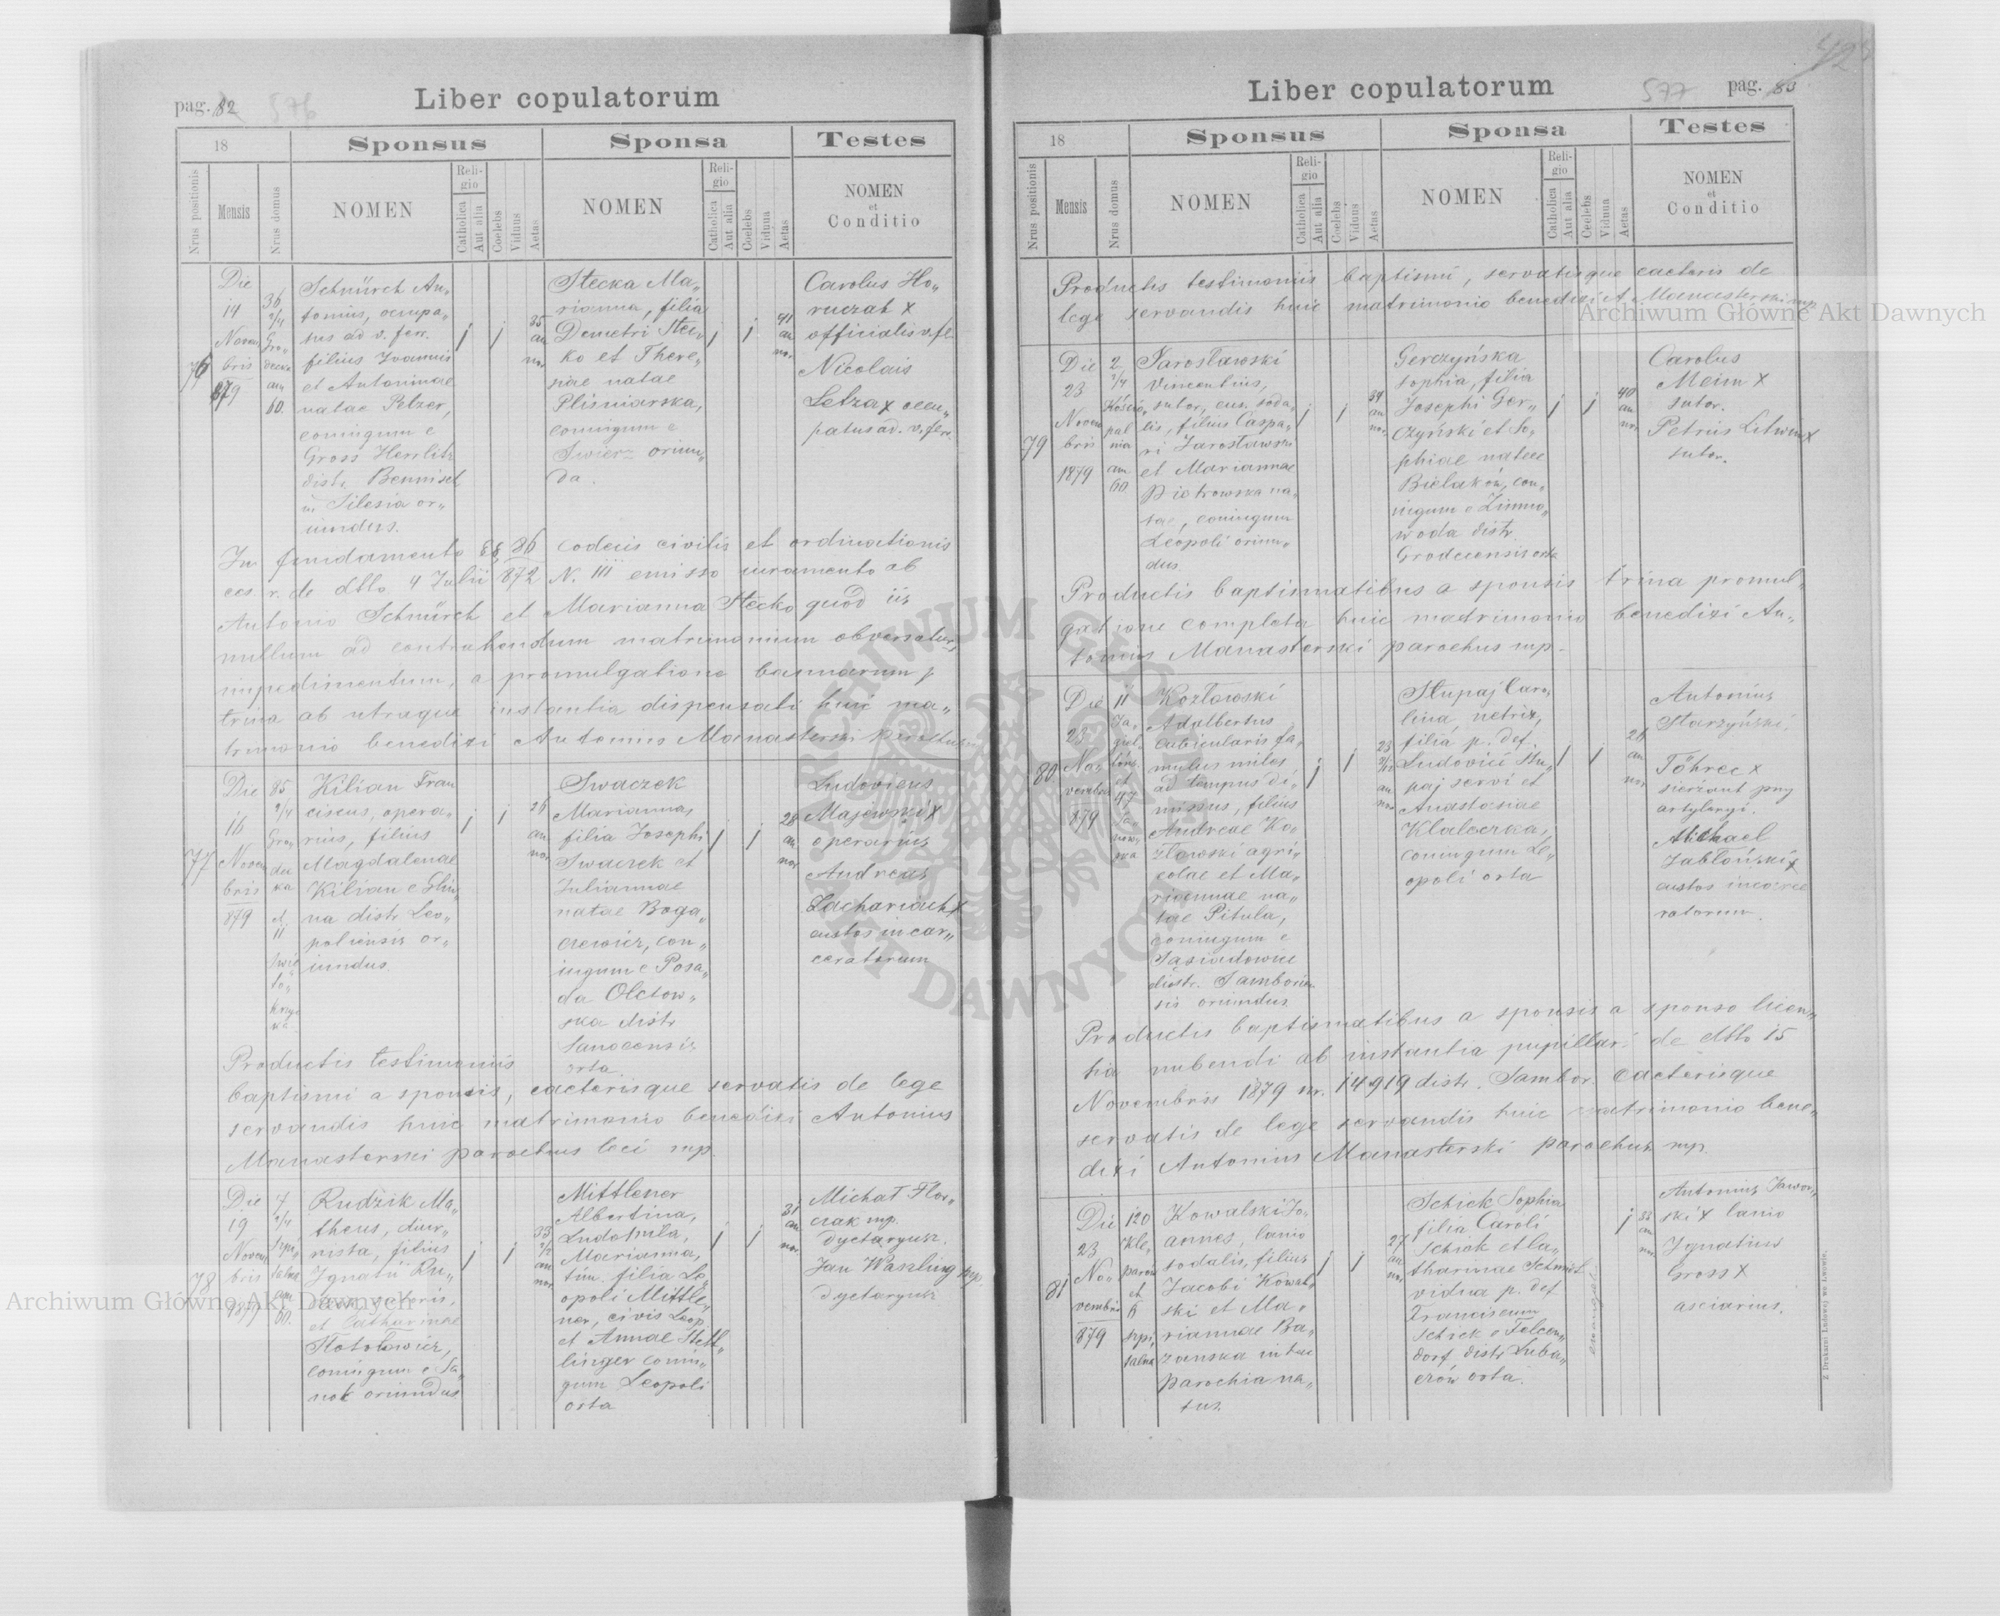 pag. 82 576
Liber copulatorum
18
Sponsus
Sponsa
Testes
Nrus positionis
Mensis
Nrus domus
NOMEN
Religio
Catholica
Aut alia
Coelebs
Viduus
Aetas
NOMEN
Religio
Catholica
Aut alia
Coelebs
Vidua
Aetas
NOMEN
et
Conditio
76
Die
14
Novem
bris
879
36
2/4
Gro„
decka
am
60.
Schnürch An„
tonius, occupa„
tus ad v. ferr.
filius Joannis
et Antoninae
natae Pelzer,
coniugum e
Gross Herrlitz
distr. Bennisch
in Silesia or„
iundus.
35
an
nor.
Stecka Ma„
rianna, filia
Demetri Stec„
ko et There„
siae natae
Pliśniarska,
coniugum e
Świerz oriun„
da.
41
an
nor.
Carolus Ho„
ruczak x
officialis v. fe.
Nicolais
Letza x occu„
patus ad. v. ferr.
In fundamento §§ 86 codicis civilis et ordinationis
ces. r. de dtto 4 Julii 872 N. 111 emisso iuramento ab
Antonio Schnürch et Marianna Stecko quod iis
nullum ad contrahendum matrimonium obversatur
impedimentum, a promulgatione bannorum
trina ab utraque instantia dispensati huic ma„
trimonio benedixi Antonius Manasterski parochus
77
Die
16
Novem
bris
879
85
2/4
Gro„
dec
ka
et
11
Świę
to„
krzy
ska
Kilian Fran
ciscus, opera„
rius, filius
Magdalenae
Kilian e Glin„
na distr. Leo„
poliensis or„
iundus.
26
an
nor.
Swaczek
Marianna,
filia Josephi
Swaczek et
Juliannae
natae Boga„
czewicz, con„
iugum e Posa„
da Olchow„
ska distr
Sanocensis
orta.
26
an
nor.
Ludovicus
Majewski x
operarius
Andreas
Zachariach x
custos incar„
ceratorum
Productis testimoniis
baptismi a sponsis, caeterisque servatis de lege
servandis huic matrimonio benedixi Antonius
Manasterski parochus loci mp.
78
Die
19
Novem
bris
1879
7
2/4
Szpi„
talna
am
60.
Rudzik Ma„
theus, diur„
nista, filius
Ignatii Ru„
et Catharinae
Stotołowicz,
coniugum e Sa„
nok oriundus.
33
2/12
an
nor.
Mittlener
Albertina,
Ludomila,
Marianna,
tim. filia Le„
opoli Mittle„
ner, civis Leop.
et Annae Stett„
linger coniu„
gum Leopoli
orta
31
an
nor.
Michał Flor„
czak mp.
dyetaryusz.
Jan Waszling mp
dyetaryusz
pag. 83 577
Liber copulatorum
18
Sponsus
Sponsa
Testes
Nrus positionis
Mensis
Nrus domus
NOMEN
Religio
Catholica
Aut alia
Coelebs
Viduus
Aetas
NOMEN
Religio
Catholica
Aut alia
Coelebs
Vidua
Aetas
NOMEN
et
Conditio
Productis testimoniis baptismi, servatisque caeteris de
lege servandis huic matrimonio benedixi A. Manasterski mp
79
Die
23
Novem
bris
1879
2
2/4
am
60
Jarosławski
Vincentius,
sutor, eius soda„
lis, filius Caspa„
ri Jarosławski
et Mariannae
Piotrowska na„
tae, coniugum
Leopoli oriun„
dus
34
an
nor.
Gerczyńska
Sophia, filia
Josephi Ger„
czyński et So„
phiae natae
Bielaków, con„
iugum e Zimno„
woda distr.
Grodecensis orta
40
an
nor.
Carolus
Meim x
sutor.
Petrus Litwin x
sutor.
Productis baptismatibus a sponsis trina promul„
gatione completa huic matrimonio benedixi An„
tonius Manasterski parochus mp.
80
Die
23
No„
vembris
879
11
Ja„
giel„
lońs.
et
47
Ja„
now„
ska
Kozłowski
Adalbertus
cubicularis fa„
mulus miles
ad tempus di„
missus, filius
Andreae Ko„
złowski agri„
colae et Ma„
riannae na„
tae Pitula,
coniugum e
Sąsiadowice
distr. Sambori„
sis oriundus
23
an
nor.
Stupaj Caro„
lina, netrix,
filia p. def.
Ludovici Stu„
paj servi et
Anastasiae
Klaleczka,
coniugum Le„
opoli orta
24
an
nor
Antonius
Starzyński
Töhrec x
sierżant przy
artyleryi.
Michael
Jabłoński x
custos incarce
ratorum.
Productis baptismatibus a sponsis a sponso licen„
tia nubendi ab instantia pupillari de dtto 15
Novembris 1879 nr. 14919 distr. Sambor. caeterisque
servatis de lege servandis huic matrimonio bene„
dixi Antonius Manasterski parochus mp.
81
Die
23
No„
vembris
879
120
Kle„
parów
et
6
szpi„
talna
Kowalski Jo„
annes, lanio
sodalis, filius
Jacobi Kowal„
ski et Ma„
riannae Ba„
zanska in hac
parochia na„
tus.
27
an
nor.
Schick Sophia
filia Caroli
Schick et Ca„
tharinae Schmidt
vidua p. def.
Franciscum
Schick e Felcen„
dorf distr Luba„
czów orta.
33
an
nor.
Antonius Jawor„
ski x lanio
Ignatius
Gross x
asciarius.
Z Drukarni Ludowej we Lwowie.
Archiwum Główne Akt Dawnych
Archiwum Główne Akt Dawnych